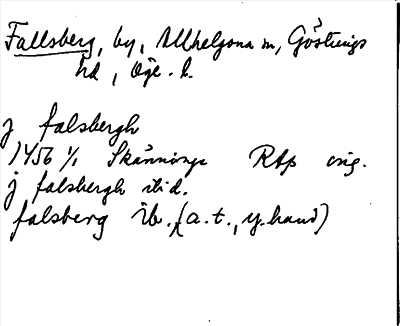 Fallsberg, by, Allhelgona sn, Göstrings
hd, Ög. l.
j falsbergh
1456 1/1 Skänninge Rap orig.
j falsbergh ibid.
falsberg ib. (a.t., y. hand)